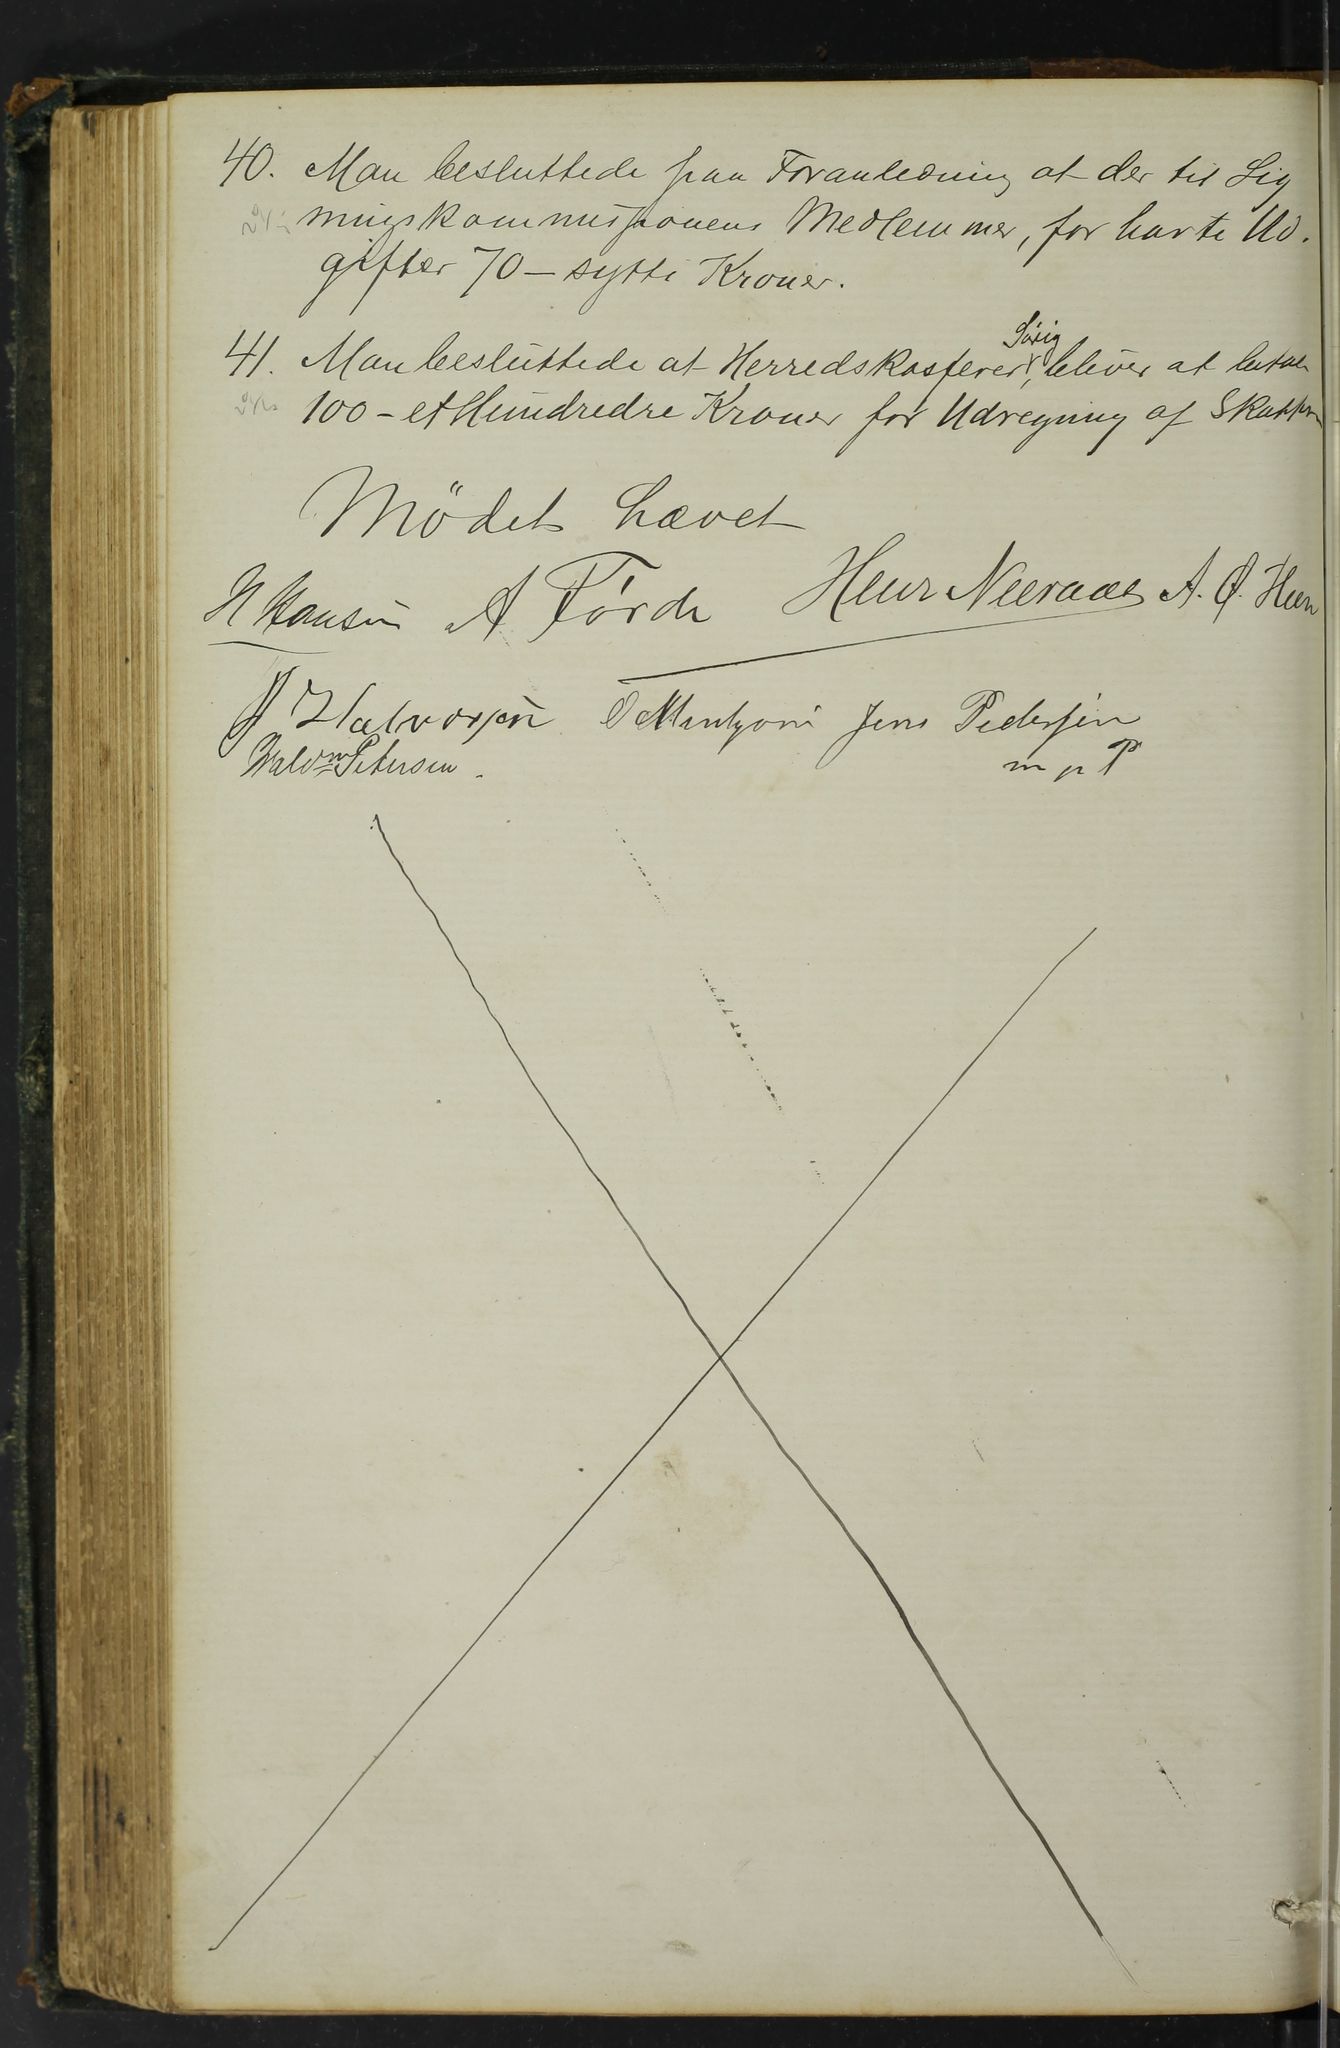 40. Man besluttede paa Foranledning at der til Lig
ningskommissionens Medlemmer, for havte Ud.
gifter 70 – sytti Kroner.
41. Man besluttede at Herredskasserer Sörig, bliver at betale
100 – et Hundredre Kroner for Udregning af Skatten
Mödet hævet
H Hansen A Förde Henr Neeraas A. O. Heen
J Halvorsen Jens Pedersen
Waldm Petersen. m p P